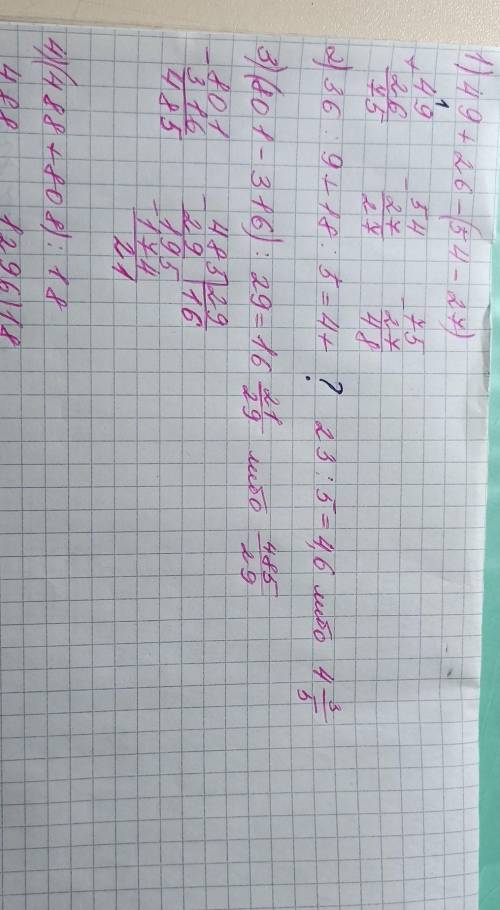 1) 49 + 26 - (54 - 27)
+ 49 - 54 - 75
26 27 27
75 27 48
2) 36 : 9 + 18 : 5 = 4 + ? 23 : 5 = 4,6 либо 4 3/5
3) (801 - 316) : 29 = 16 21/29 либо 485/29
- 801 - 485 | 29
316 29 | 16
485 - 195
- 174
21
4) (488 + 808) : 18
488 1296 | 18